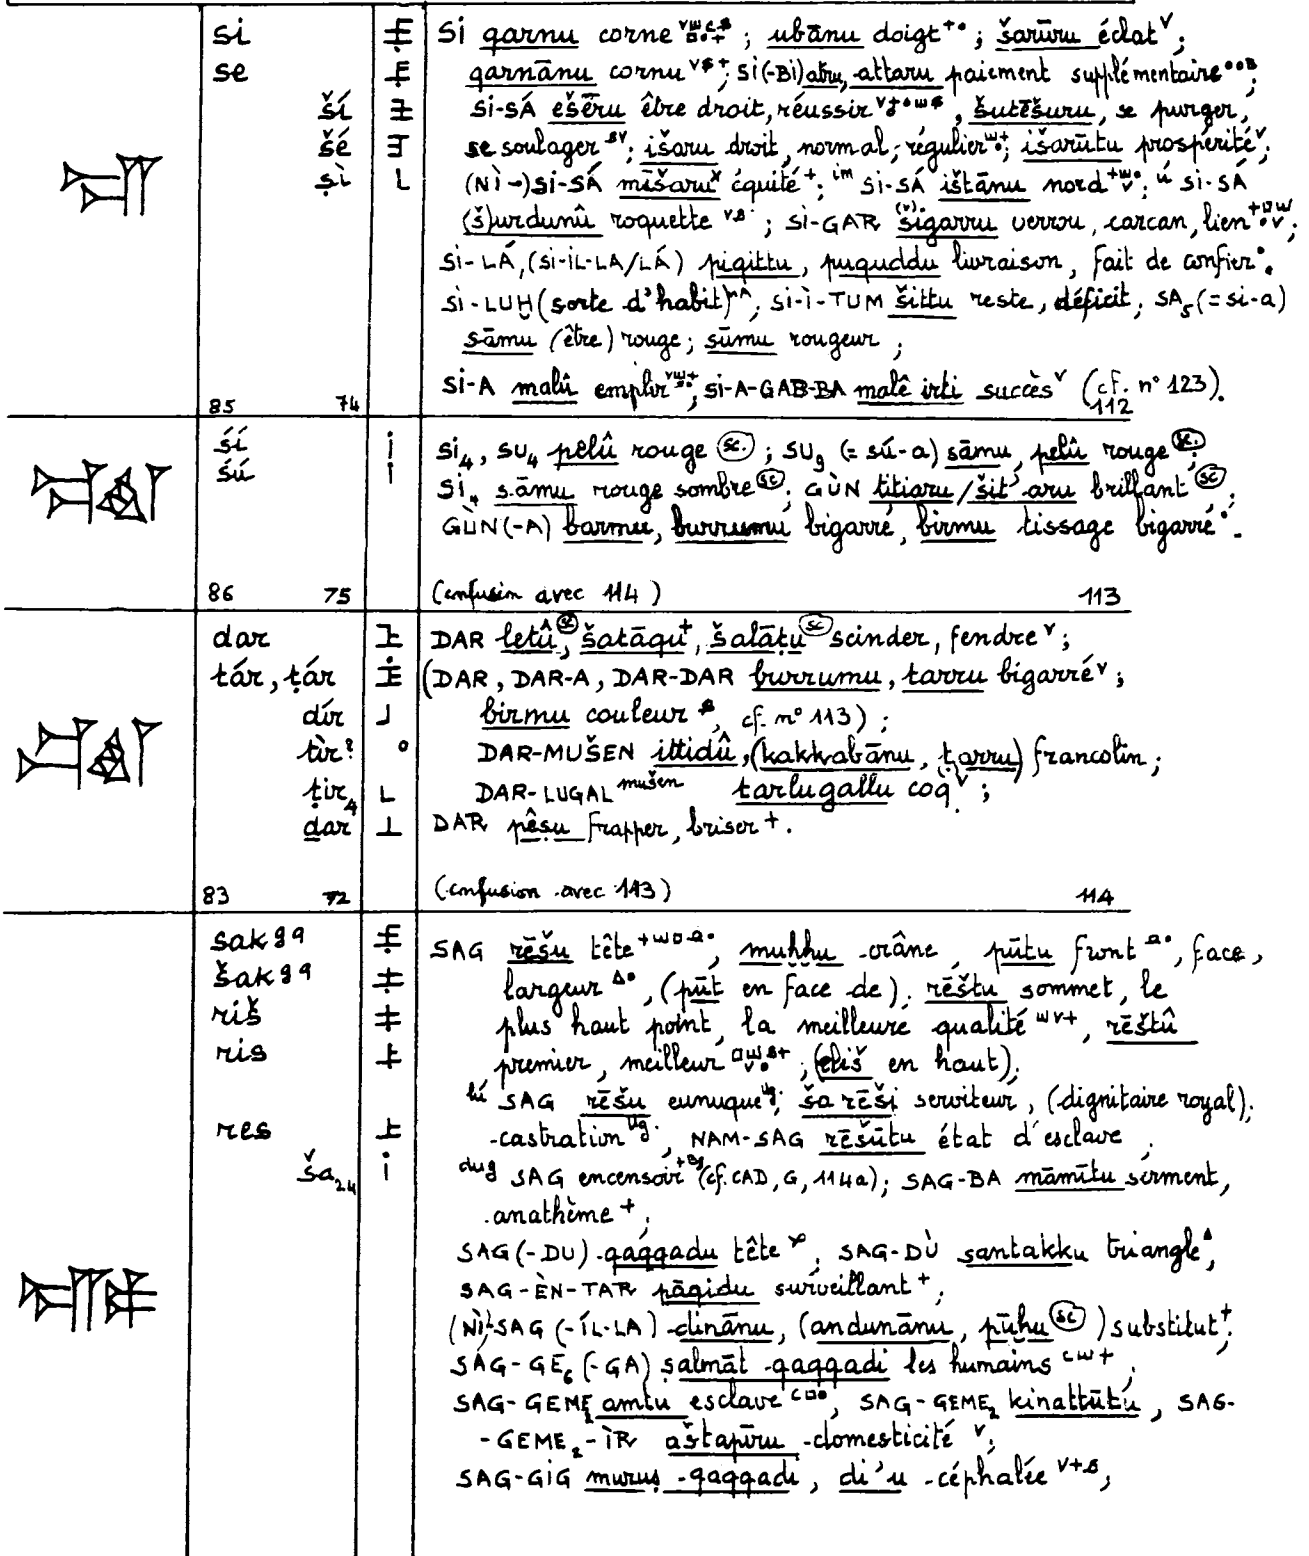 si SI qarnu corne ; ubānu doigt ; šarūru éclat ;
se qarnānu cornu ; SI(-BI) atru, attaru paiement supplémentaire ;
ší SI-SÁ ešēru être droit, réussir , šutēšuru, se purger,
šé se soulager ; išaru droit, normal, régulier ; išarūtu prospérité ;
ṣì (NÌ-)SI-SÁ mīšaru équité ; im SI-SÁ ištānu nord ; ú SI-SÁ
(š)urdunû roquette ; SI-GAR šigarru verrou, carcan, lien ;
SI-LÁ, (SI-IL-LA/LÁ) piqittu, puquddu livraison, fait de confier.
SI-LUḪ (sorte d'habit) ; SI-Ì-TUM šittu reste, déficit ; SA₅ (= si-a)
sāmu (être) rouge ; sūmu rougeur ;
SI-A malû emplir ; SI-A-GAB-BA malê irti succès (cf. n° 123).
85 74 112
śí SI₄, SU₄ pelû rouge (sc.) ; SU₉ (= sú-a) sāmu, pelû rouge (sc.) ;
śú SI₄ sāmu rouge sombre (sc) ; GÙN titiaru/šit'aru brillant (sc) ;
GÙN(-A) barmu, burrumu bigarré, birmu tissage bigarré .
86 75 (confusion avec 114) 113
dar DAR letû (sc), šatāqu, šalāṭu (sc) scinder, fendre ;
tár, ṭár (DAR, DAR-A, DAR-DAR burrumu, tarru bigarré ;
dír birmu couleur , cf. n° 113) ;
tìr? DAR-MUŠEN ittidû, (kakkabānu, ṭarru) francolin ;
ṭir₄ DAR-LUGAL mušen tarlugallu coq ;
ḏar DAR pêṣu frapper, briser +.
83 72 (confusion avec 113) 114
sak g q SAG rēšu tête , muḫḫu crâne, pūtu front , face,
šak g q largeur , (pūt en face de), rēštu sommet, le
riš plus haut point, la meilleure qualité , rēštû
ris premier, meilleur , (eliš en haut),
lú SAG rēšu eunuque ; ša rēši serviteur, (dignitaire royal),
res castration , NAM-SAG rēšūtu état d'esclave ,
ša₂₄ dug SAG encensoir (cf. CAD, G, 114a) ; SAG-BA māmītu serment,
anathème + ,
SAG(-DU) qaqqadu tête , SAG-DÙ santakku triangle ,
SAG-ÈN-TAR pāqidu surveillant + ,
(NÌ)-SAG (-ÍL-LA) dinānu, (andunānu, pūḫu (sc)) substitut + ,
SAG-GE₆ (-GA) ṣalmāt qaqqadi les humains ,
SAG-GEME₂ amtu esclave , SAG-GEME₂ kinattūtu, SAG-
-GEME₂-ÌR aštapīru domesticité ;
SAG-GIG muruṣ qaqqadi, di'u céphalée ,